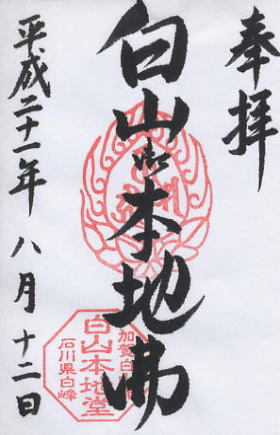 奉拝
白山御本地仏
平成二十一年 八月 十二日
加賀白
白山本地堂
石川県白峰